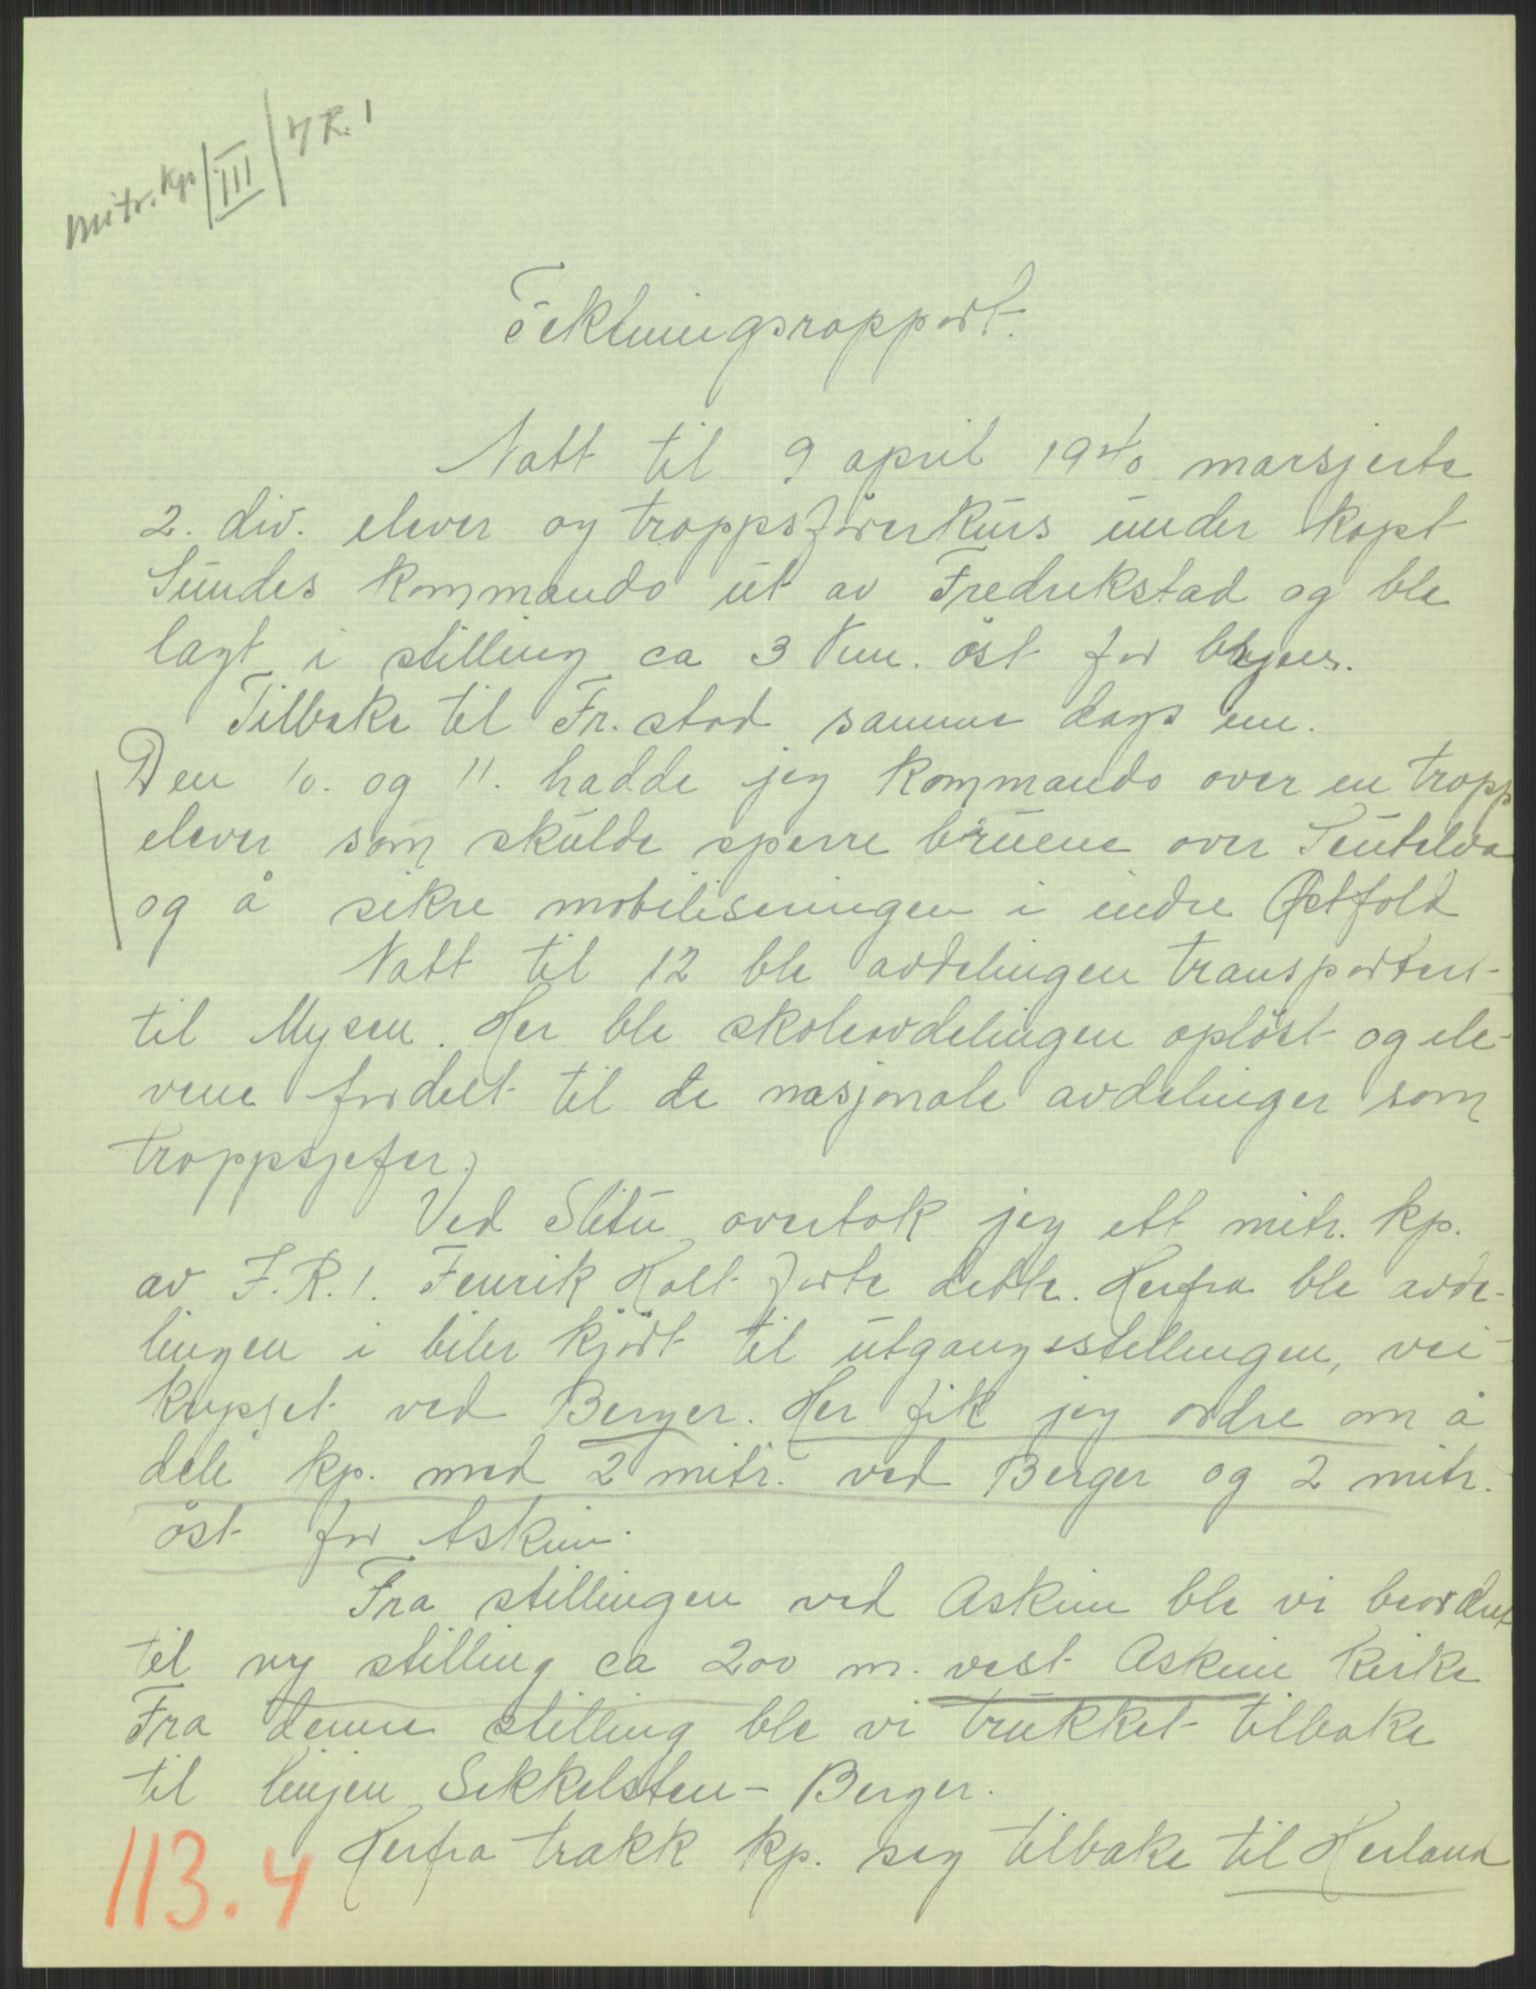 Mitr. kp/III/I.R.1
Fektningsrapport.
Natt til 9 april 1940 marsjerte
2. div. elever og troppsförerkurs under kapt
Sundes kommando ut av Fredrikstad og ble
lagt i stilling ca 3 km. öst for byen.
Tilbake til Fr.stad samme dags em.
Den 10. og 11. hadde jeg kommando over en tropp
elever som skulde sperre bruene over
og å sikre mobiliseringen i indre Østfold
Natt til 12 ble avdelingen transportert
til Mysen. Her ble skoleavdelingen oplöst og ele-
vene fordelt til de nasjonale avdelinger som
troppsjefer.
Ved Slitu overtok jeg ett mitr. kp.
av I.R.1. Fenrik Holt förte dette. Herfra ble avde-
lingen i biler kjört til utgangsstillingen, vei-
krysset ved Berger. Her fik jeg ordre om å
dele kp. med 2 mitr. ved Berger og 2 mitr.
öst for Askim.
Fra stillingen ved Askim ble vi beordret
til ny stilling ca 200 m. vest Askim kirke
Fra denne stilling ble vi trukket tilbake
til linjen Sekkelsten - Berger.
Herfra trakk kp. seg tilbake til Herland
113.4